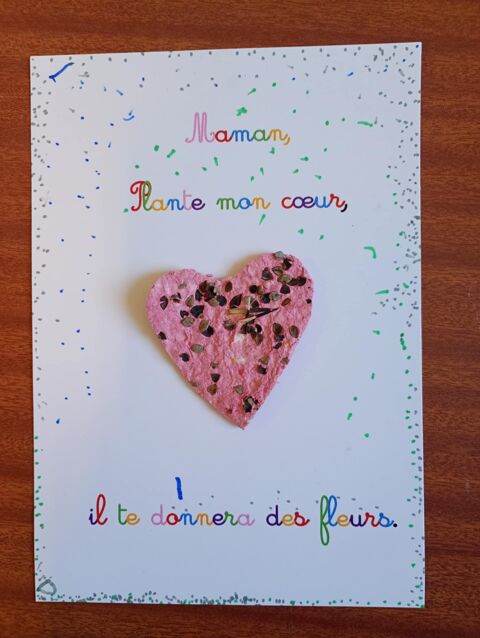 Maman,
Plante mon cœur,
il te donnera des fleurs.